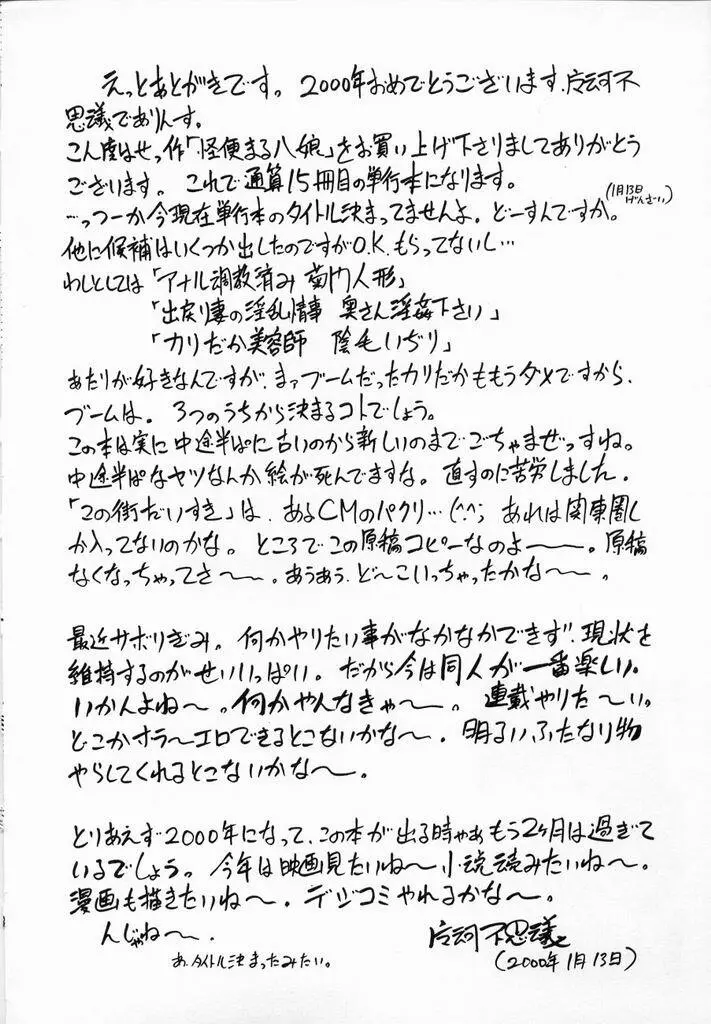 えっとあとがきです。2000年おめでとうございます、片河不
思議でありんす。
こん度はせっ作「怪便まる八娘」をお買い上げ下さりましてありがとう
ございます。これで通算15冊目の単行本になります。
…っつーか今現在単行本のタイトル決まってませんよ。どーすんですか。(1月13日げんざい)
他に候補はいくつか出したのですがO.K.もらってないし…
わしとしては「アナル調教済み 菊門人形」
「出戻り妻の淫乱情事 奥さん淫姦下さい」
「カリだか美容師 陰毛いぢり」
あたりが好きなんですが、まァブームだったカリだかももうダメですから、
ブームは。3つのうちから決まるコトでしょう。
この本は実に中途半ぱに古いのから新しいのまでごちゃまぜっすね。
中途半ぱなヤツなんか絵が死んでますな。直すのに苦労しました。
「この街だいすき」は、あるCMのパクリ…(^.^; あれは関東圏し
か入ってないのかな。ところでこの原稿コピーなのよ———。原稿
なくなっちゃってさ〜〜。あうあう、ど〜こいっちゃったかな〜〜。
最近サボりぎみ。何かやりたい事がなかなかできず、現状を
維持するのがせいいっぱい。だから今は同人が一番楽しい。
いかんよね〜。何かやんなきゃ〜。連載やりた〜い。
どこかホラ〜エロできるとこないかな〜。明るいふたなり物
やらしてくれるとこないかな〜。
とりあえず2000年になって、この本が出る時ゃあもう2ヶ月は過ぎて
いるでしょう。今年は映画見たいね〜小説読みたいね〜。
漫画も描きたいね〜。デジコミやれるかな〜。
んじゃね〜。
片河不思議
あ、タイトル決まったみたい。
(2000年1月13日)